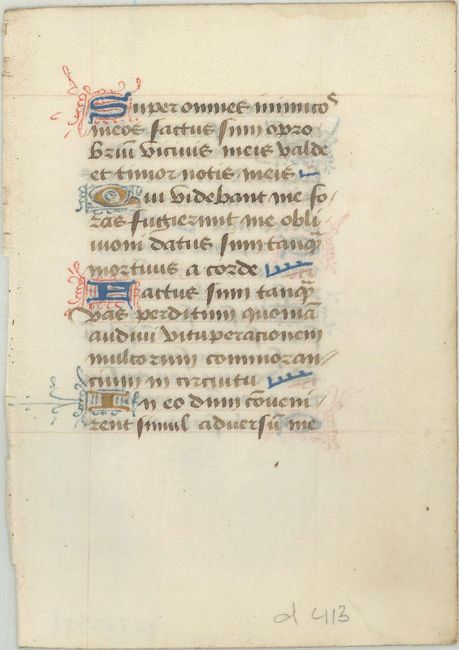 Super omnes inimicos
meos factus sum opro
briū vicinis meis valde
et timor notis meis
Qui videbant me fo/
ras fugierunt me obli
vioni datus sum tanq̄
mortuus a corde
Factus sum tanq̄
vas perditum quoniā
audivi vituperationem
multorum commoran/
cium in circuitu
In eo dum cōveni/
rent simul adversū me
d 413